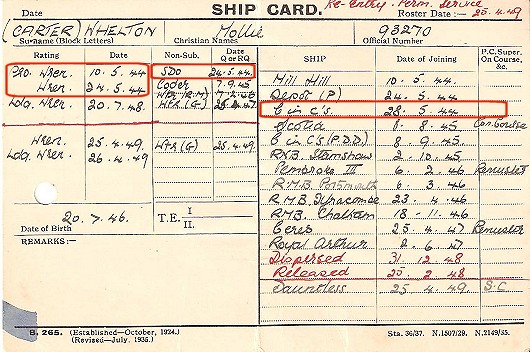 Date SHIP CARD. Re-Entry. Perm. Service
Roster Date:- 25.4.49
(CARTER) WHELTON Mollie 93270
Surname (Block Letters) Christian Names Official Number
Rating Date Non-Sub. Date Q or RQ SHIP Date of Joining P.C. Super. On Course, &c.
Pro. Wren. 10.5.44 SDO 24.5.44 Mill Hill 10.5.44
Wren. 24.5.44 Coder 7.9.45 Depot (P) 24.5.44
C in C's 28.5.44
Ldg. Wren. 20.7.48 Wtr (G) Scotia 8.45
C in C's (P.D.D) 8.9.45
Wren. 25.4.49 Wtr (G) 25.4.49 R.N.B. Stamshaw 2.10.45
Ldg. Wren. 26.4.49 Pembroke III 6.2.46
R.M.B. Portsmouth 6.3.46
R.M.B. Ilfracombe 23.4.46
20.7.46. T.E. I II. RMB. Chatham 18-11.46
Date of Birth Ceres 25.4.47
REMARKS:— Royal Arthur 2.6.47
Dispersed 31.12.48
Released 25.2.48
Dauntless 25.4.49 S.C.
S. 265. (Established—October, 1924.)
(Revised—July, 1935.) Sta. 36/37. N.1507/29. N.2149/35.